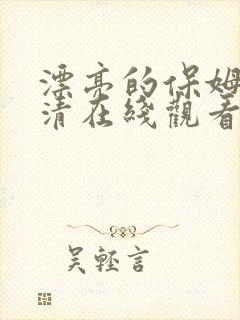 漂亮的保姆
清在綫觀看
吴輕言